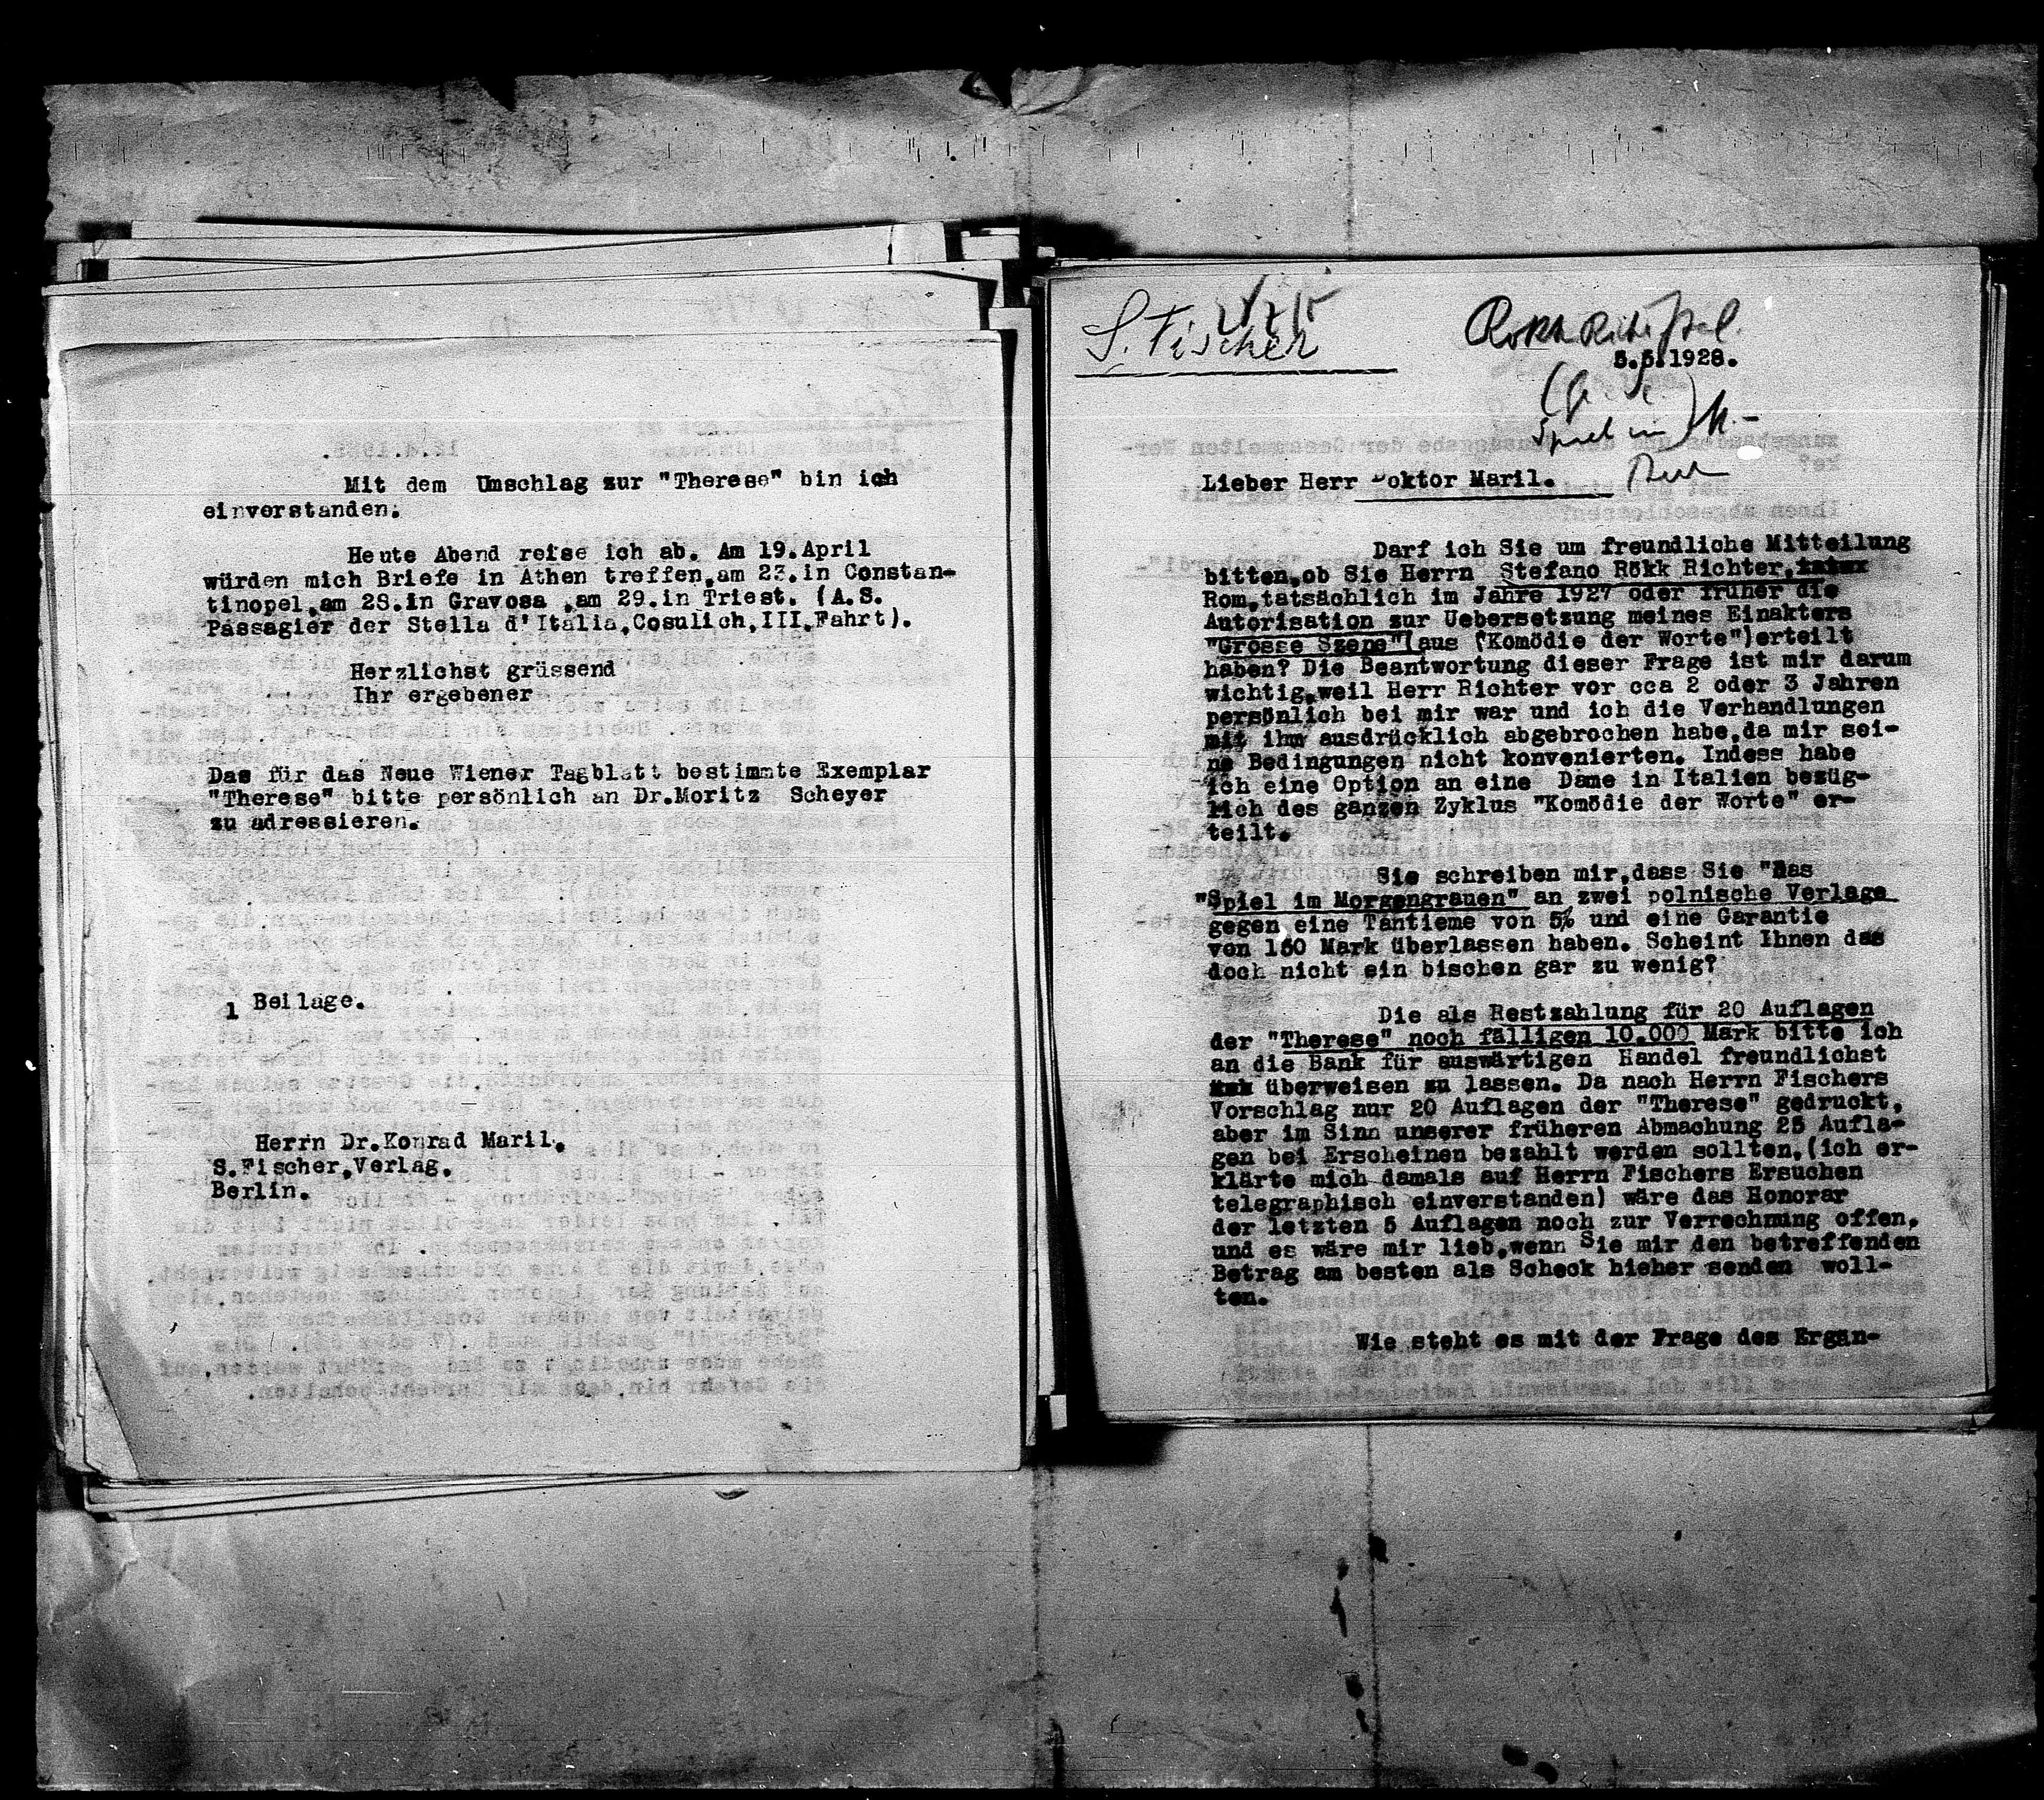 Mit dem Umschlag zur "Therese" bin ich
einverstanden.
Heute Abend reise ich ab. Am 19.April
würden mich Briefe in Athen treffen,am 23.in Constan-
tinopel,am 28.in Gravosa ,am 29.in Triest. (A.S.
Passagier der Stella d'Italia,Cosulich,III.Fahrt).
Herzlichst grüssend
Ihr ergebener
Das für das Neue Wiener Tagblatt bestimmte Exemplar
"Therese" bitte persönlich an Dr.Moritz Scheyer
zu adressieren.
1 Beilage.
Herrn Dr.Konrad Maril.
S.Fischer,Verlag.
Berlin.
S. Fischer
5.5.1928.
Spiel im
Lieber Herr Doktor Maril.
Darf ich Sie um freundliche Mitteilung
bitten,ob Sie Herrn Stefano Rökk Richter,
Rom,tatsächlich im Jahre 1927 oder früher die
Autorisation zur Uebersetzung meines Einakters
"Grosse Szene"(aus (Komödie der Worte")erteilt
haben? Die Beantwortung dieser Frage ist mir darum
wichtig,weil Herr Richter vor cca 2 oder 3 Jahren
persönlich bei mir war und ich die Verhandlungen
mit ihm ausdrücklich abgebrochen habe,da mir sei-
ne Bedingungen nicht konvenierten. Indess habe
ich eine Option an eine Dame in Italien bezüg-
lich des ganzen Zyklus "Komödie der Worte" er-
teilt.
Sie schreiben mir,dass Sie "Das
"Spiel im Morgengrauen" an zwei polnische Verlage
gegen eine Tantieme von 5% und eine Garantie
von 150 Mark überlassen haben. Scheint Ihnen das
doch nicht ein bischen gar zu wenig?
Die als Restzahlung für 20 Auflagen
der "Therese" noch fälligen 10.000 Mark bitte ich
an die Bank für auswärtigen Handel freundlichst
überweisen zu lassen. Da nach Herrn Fischers
Vorschlag nur 20 Auflagen der "Therese" gedruckt,
aber im Sinn unserer früheren Abmachung 25 Aufla-
gen bei Erscheinen bezahlt werden sollten,(ich er-
klärte mich damals auf Herrn Fischers Ersuchen
telegraphisch einverstanden) wäre das Honorar
der letzten 5 Auflagen noch zur Verrechnung offen,
und es wäre mir lieb,wenn Sie mir den betreffenden
Betrag am besten als Scheck hieher senden woll-
ten.
Wie steht es mit der Frage des Ergän-